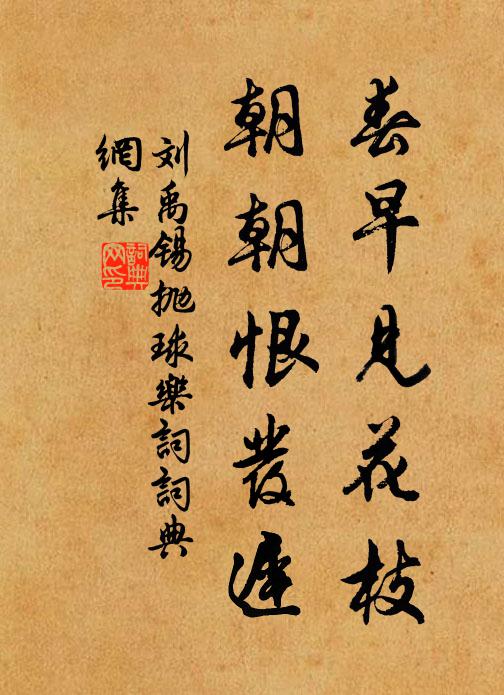 春早見花枝
朝朝恨發遲
刘禹锡抛球樂詞詞典
網集
詞典